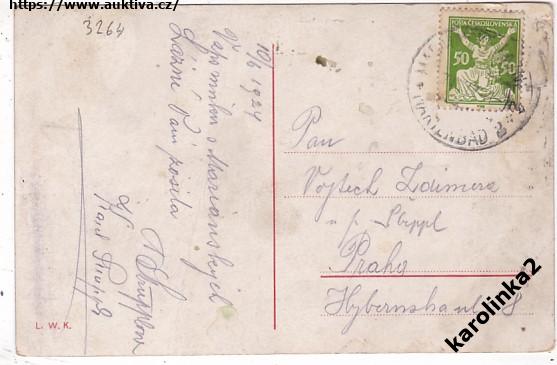 https://www.auktiva.cz/
3264
V 10/6 1924
Vzpomínku z Mariánských
Lázní Vám posílá
Karel
POŠTA ČESKOSLOVENSKÁ
50 50
MARIENBAD 2
Pan
Vojtěch Zdimera
u p. Stippl
Praha
Hybernská ul. 8
L. W. K.
karolinka2